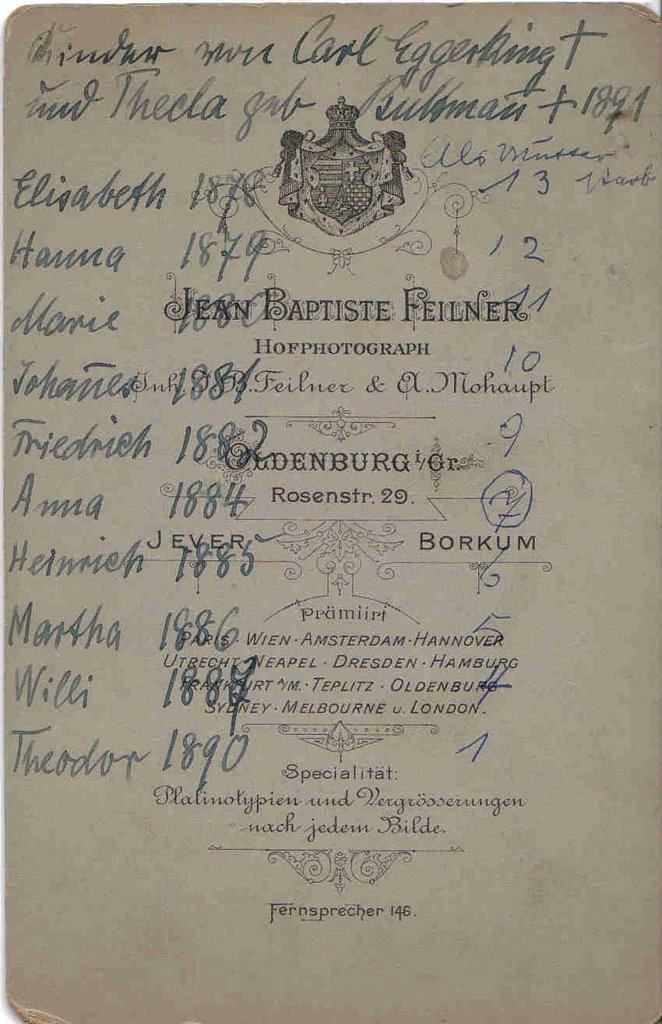 Kinder von Carl Eggerking †
und Thecla geb Bultmann † 1891
Als Mutter
starb
Elisabeth 1878 13
Hanna 1879 12
Marie 1880 11
Johannes 1881 10
Friedrich 1882 9
Anna 1884 7
Heinrich 1885 6
Martha 1886 5
Willi 1887 4
Theodor 1890 1
JEAN BAPTISTE FEILNER
HOFPHOTOGRAPH
Inh. J. B. Feilner & A. Mohaupt
OLDENBURG i/Gr.
Rosenstr. 29.
JEVER BORKUM
Prämiirt
PARIS · WIEN · AMSTERDAM · HANNOVER
UTRECHT · NEAPEL · DRESDEN · HAMBURG
FRANKFURT a/M. · TEPLITZ · OLDENBURG
SYDNEY · MELBOURNE u. LONDON.
Specialität:
Platinotypien und Vergrösserungen
nach jedem Bilde.
Fernsprecher 146.